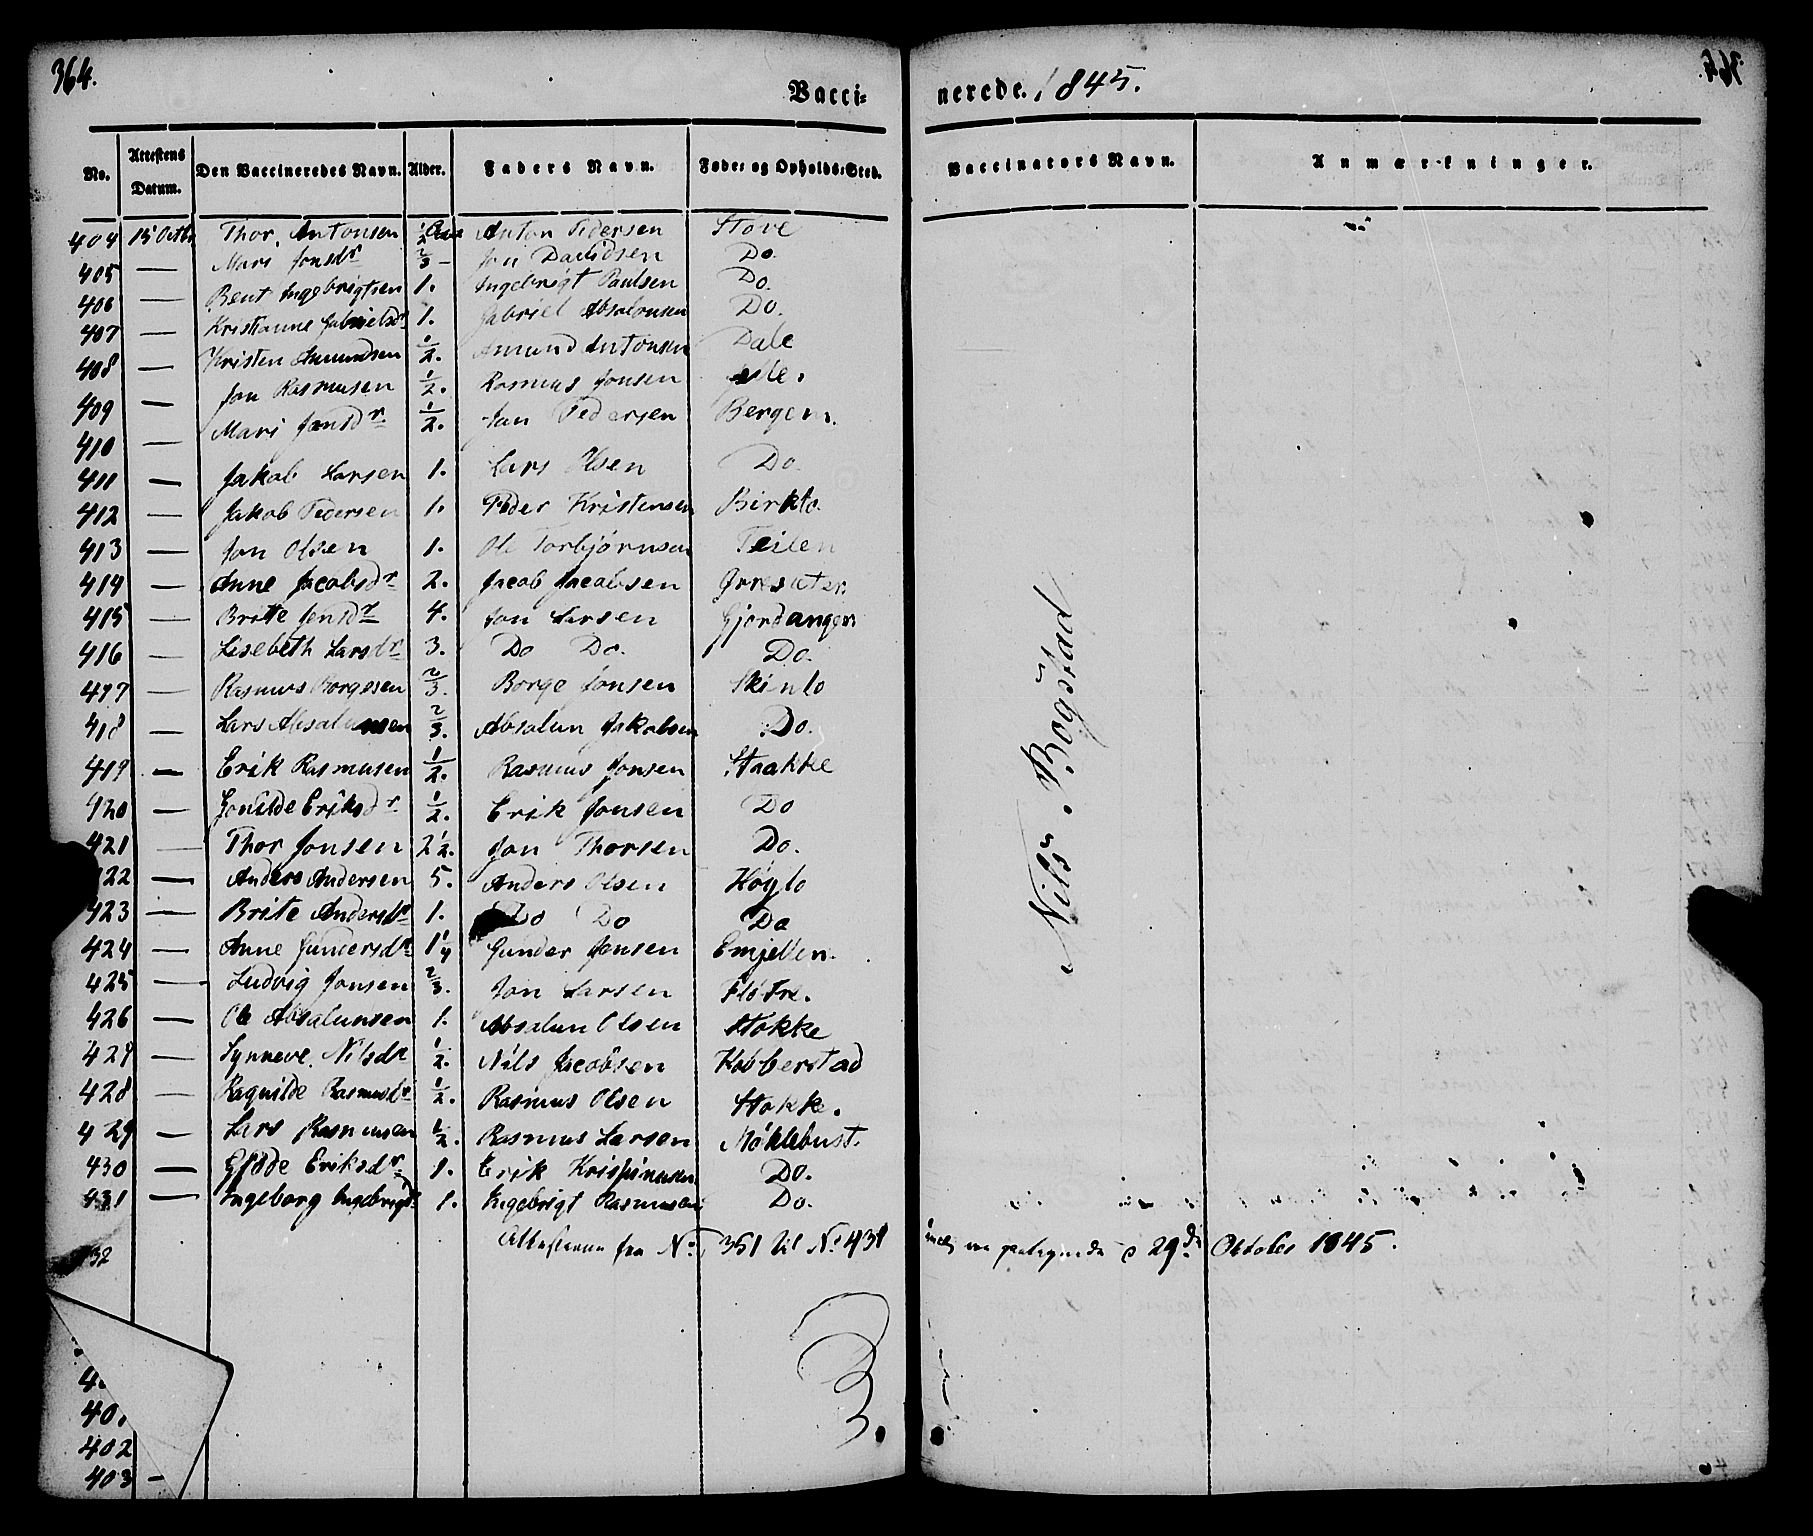 364.
Vaccinerede. 1845.
No. Attestens Datum. Den Vaccineredes Navn. Alder. Faders Navn. Føde- og Opholds-Sted. Vaccinators Navn. Anmærkninger.
404 15 Octbr Thor. Antonsen 1/2 Anton Pedersen Støve
405 — Mari Jonsdr 2/3 — Jon Davidsen Do.
406 — Bent Ingebrigtsen 1. Ingebrigt Paulsen Do.
407 — Kristianne Gabrielsdr 1. Gabriel Absalonsen Do.
408 — Kristen Amundsen 1/2. Amund Antonsen Dale
409 — Jon Rasmusen 1/2. Rasmus Jonsen
410 — Mari Jonsdr 1/2. Jon Pedersen Bergem.
411 — Jakob Larsen 1. Lars Olsen Do.
412 — Jakob Pedersen 1. Peder Kristensen Birklo.
413 — Jon Olsen 1. Ole Torbjørnsen Teilen
414 — Anne Jacobsdr 2. Jacob Jacobsen Ørresæter.
415 — Britte Jensdr 4. Jon Larsen Gjordanger
416 — Lisebeth Larsdr 3. Do Do. Do.
417 — Rasmus Borgesen 2/3. Borge Jonsen Skinlo
418 — Lars Absalunsen 2/3. Absalun Jakobsen Do.
419 — Erik Rasmusen 1/2. Rasmus Jonsen Staakke
420 — Gonilde Eriksdr 1/2. Erik Jonsen Do
421 — Thor Jonsen 2 1/2. Jon Thorsen Do.
422 — Anders Andersen 5. Anders Olsen Høylo
423 — Brite Andersdr 1. Do Do Do
424 — Anne Gundersdr 1 1/4 Gunder Jensen Emjellen.
425 — Ludvig Jonsen 2/3. Jon Larsen Fløtre.
426 — Ole Absalunsen 1. Absalun Olsen Stokke
427 — Synneve. Nilsdr 1/2. Nils Jacobsen Kobberstad
428 — Raguilde Rasmusdr 1/2. Rasmus Olsen Stokke.
429 — Lars Rasmusen 1/2. Rasmus Larsen Møklebust.
430 — Eriksdr 1. Erik Do.
431 — Ingeborg Ingebrigtsdr 1. Ingebrigt Rasmusen Do.
Nils Bogstad
32 Attesterne fra No. 351 til No. 431 29de Oktober 1845.
40.
402
403 —